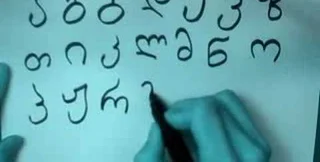 ა ბ გ დ ე ვ ზ
თ ი კ ლ მ ნ ო
პ ჟ რ